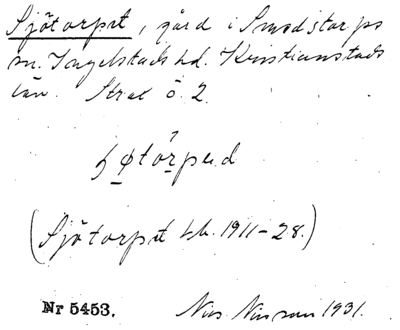 Sjötorpet, gård i Smedstorps
sn. Ingelstads hd. Kristianstads
län. Strax ö. 2.
(Sjötorpet Lb. 1911-28.)
Nr 5453. Nils Nilsson 1931.